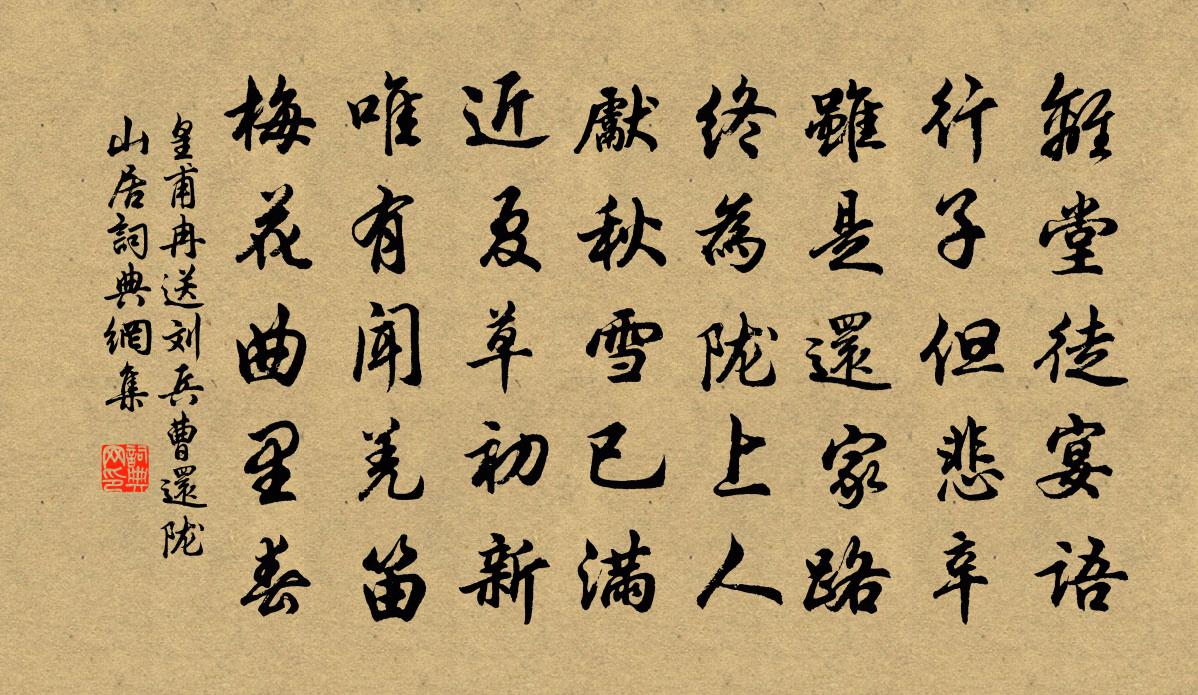 離堂徒宴語
行子但悲辛
雖是還家路
終為陇上人
獻秋雪已滿
近夏草初新
唯有闻羌笛
梅花曲里春
皇甫冉送刘兵曹還陇
山居詞典網集
詞典网印